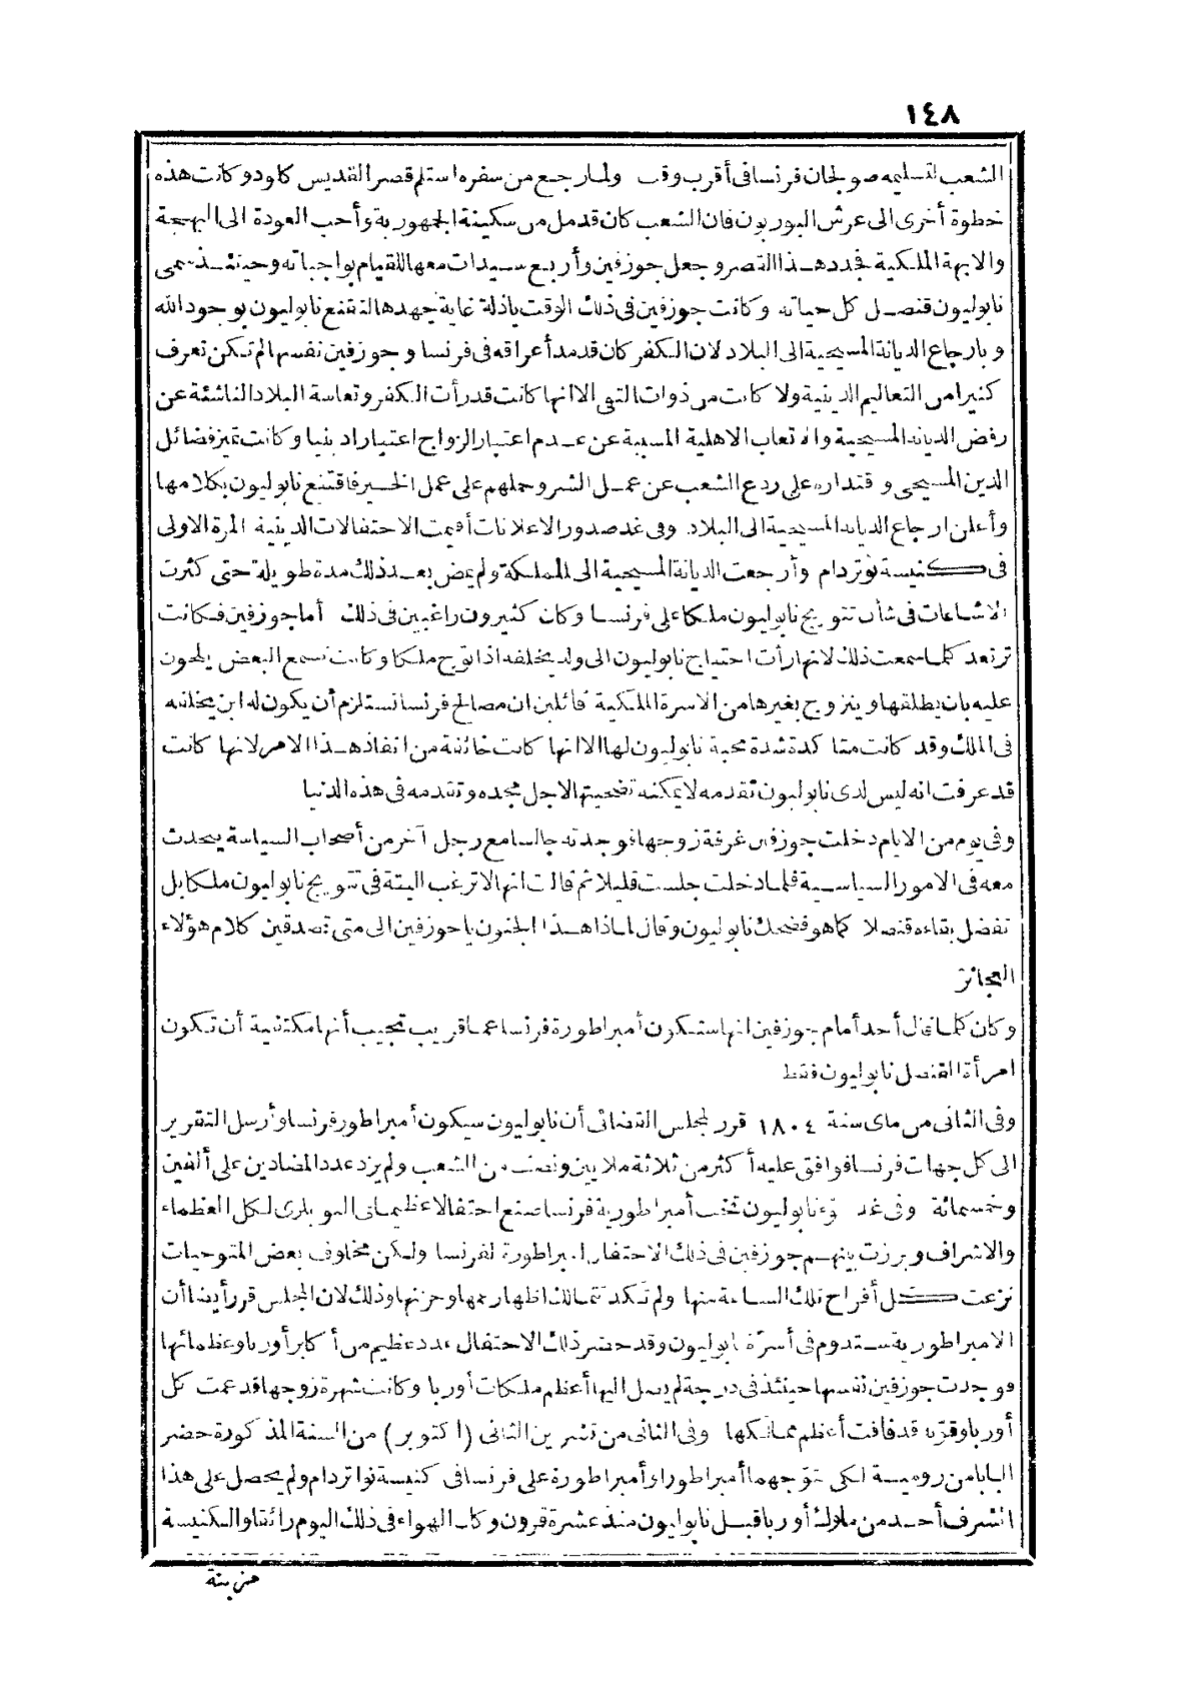 ١٤٨
الشعب لتسليمه صولجان فرنسا فى أقرب وقت ولما رجع من سفره استلم قصر القديس كلود وكانت هذه
خطوة أخرى الى عرش البوربون فان الشعب كان قد مل من سكينة الجمهورية وأحب العودة الى البهجة
والابهة الملكية فجدد هذا القصر وجعل جوزفين وأربع سيدات معها للقيام بواجباته وحينئذ سمى
نابوليون قنصل كل حياته وكانت جوزفين فى ذلك الوقت باذلة غاية جهدها لتقنع نابوليون بوجود الله
وبارجاع الديانة المسيحية الى البلاد لان الكفر كان قد مد أعراقه فى فرنسا وجوزفين نفسها لم تكن تعرف
كثيرا من التعاليم الدينية ولا كانت من ذوات التقى الا انها كانت قد رأت الكفر وتعاسة البلاد الناشئة عن
رفض الديانة المسيحية والاتعاب الاهلية المسببة عن عدم اعتبار الزواج اعتبارا دينيا وكانت تميز فضائل
الدين المسيحى واقتداره على ردع الشعب عن عمل الشر وحملهم على عمل الخير فاقتنع نابوليون بكلامها
وأعلن ارجاع الديانة المسيحية الى البلاد وفى غد صدور الاعلانات أقيمت الاحتفالات الدينية المرة الاولى
فى كنيسة نوتردام وأرجعت الديانة المسيحية الى المملكة ولم يمض بعد ذلك مدة طويلة حتى كثرت
الاشاعات فى شأن تتويج نابوليون ملكا على فرنسا وكان كثيرون راغبين فى ذلك أما جوزفين فكانت
ترتعد كلما سمعت ذلك لانها رأت احتياج نابوليون الى ولد يخلفه اذا توج ملكا وكانت تسمع البعض يلحون
عليه بان يطلقها ويتزوج بغيرها من الاسرة الملكية قائلين ان مصالح فرنسا تستلزم أن يكون له ابن يخلفه
فى الملك وقد كانت متأكدة شدة محبة نابوليون لها الا انها كانت خائفة من انفاذ هذا الامر لانها كانت
قد عرفت انه ليس لدى نابوليون تقدمه لا يمكنه تضحيتها لاجل مجده وتقدمه فى هذه الدنيا
وفى يوم من الايام دخلت جوزفين غرفة زوجها فوجدته جالسا مع رجل آخر من أصحاب السياسة يتحدث
معه فى الامور السياسية فلما دخلت جلست قليلا ثم قالت انها لا ترغب البتة فى تتويج نابوليون ملكا بل
تفضل بقاءه قنصلا كما هو فضحك نابوليون وقال لماذا هذا الجنون يا جوزفين الى متى تصدقين كلام هؤلاء
العجائز
وكان كلما قال أحد أمام جوزفين انها ستكون أمبراطورة فرنسا عما قريب تجيب أنها مكتفية أن تكون
امرأة القنصل نابوليون فقط
وفى الثانى من ماى سنة ١٨٠٤ قرر لمجلس القضائى أن نابوليون سيكون أمبراطور فرنسا وأرسل التقرير
الى كل جهات فرنسا فوافق عليه أكثر من ثلاثة ملايين ونصف من الشعب ولم يزد عدد المضادين على ألفين
وخمسمائة وفى غد نابوليون تخت أمبراطورية فرنسا صنع احتفالا عظيما فى لكل العظماء
والاشراف وبرزت بينهم جوزفين فى ذلك الاحتفال امبراطورة لفرنسا ولكن مخاوف بعض المتوحيات
نزعت كل أفراح تلك الساعة منها ولم تكد تتمالك اظهار همها وحزنها وذلك لان المجلس قرر أيضا أن
الامبراطورية ستدوم فى أسرة نابوليون وقد حضر ذلك الاحتفال عدد عظيم من أكابر أوربا وعظمائها
فوجدت جوزفين نفسها حينئذ فى درجة لم يصل اليها أعظم ملكات أوربا وكانت شهرة زوجها قد عمت كل
أوربا وقوته قد فاقت أعظم ممالكها وفى الثانى من تشرين الثانى (اكتوبر) من السنة المذكورة حضر
البابا من رومية لكى يتوجهما أمبراطورا وأمبراطورة على فرنسا فى كنيسة نواتردام ولم يحصل على هذا
الشرف أحد من ملوك أوربا قبل نابوليون منذ عشرة قرون وكان الهواء فى ذلك اليوم رائقا والكنيسة
مزينة